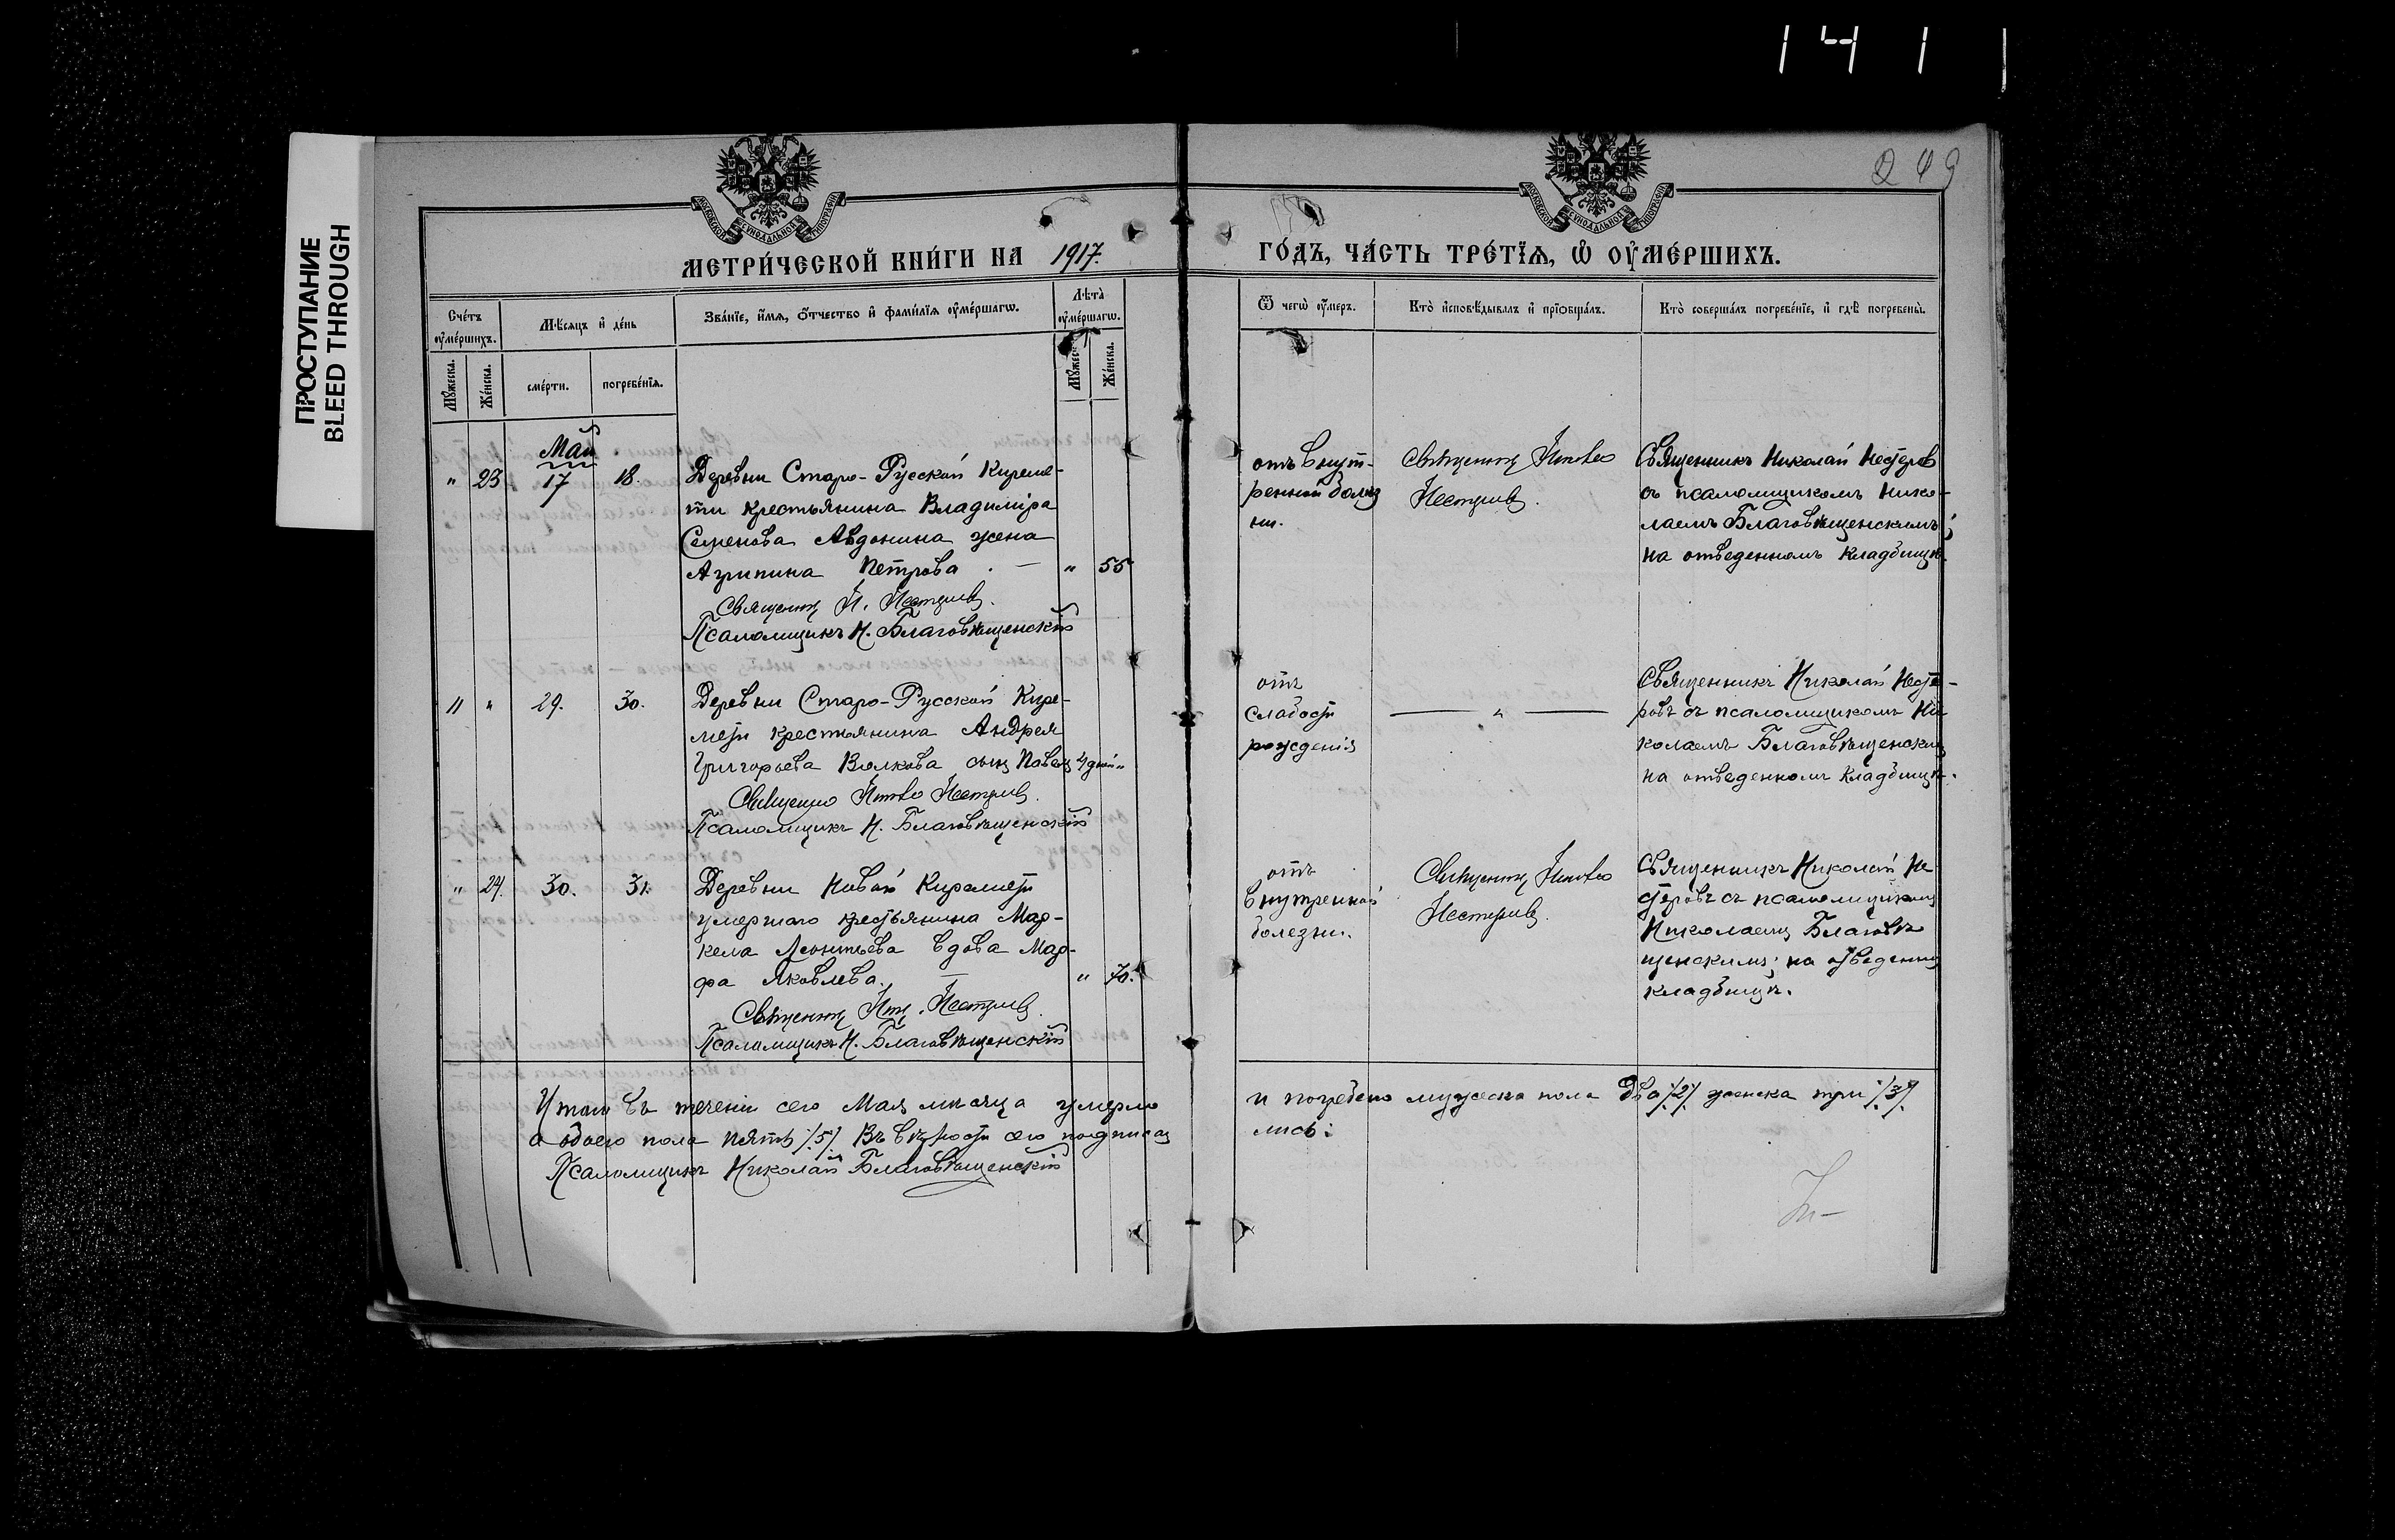 141
ПРОСТУПАНИЕ
BLEED THROUGH
249
МОСКОВСКОЙ СѴНОДАЛЬНОЙ ТИПОГРАФІИ
МОСКОВСКОЙ СѴНОДАЛЬНОЙ ТИПОГРАФІИ
МЕТРИ́ЧЕСКОЙ КНИ́ГИ НА 1917.
ГО́ДЪ, ЧА́СТЬ ТРЕ́ТЇѦ, Ѽ ОУ҆МЕ́РШИХЪ.
Сче́тъ оу҆ме́ршихъ.
Мѣ́сяцъ и҆ де́нь
Зва́нїе, и҆́мѧ, ѻ҆́тчество и҆ фами́лїѧ оу҆ме́ршагѡ.
Лѣта̀ оу҆ме́ршагѡ.
Ѿ чегѡ̀ оу҆́меръ.
Кто̀ и҆сповѣ́дывалъ и҆ прїѻбща́лъ.
Кто̀ соверша́лъ погребе́нїе, и҆ гдѣ̀ погребены̀.
Мꙋ́жеска.
Же́нска.
сме́рти.
погребе́нїѧ.
Мꙋ́жеска.
Же́нска.
Май
" 23 17 18.
Деревни Старо-Русской Киреме-
ти крестьянина Владиміра
Семенова Авдонина жена
Агрипина Петрова . — " 55
Священникъ Н. Нестеровъ.
Псаломщикъ Н. Благовѣщенскій
отъ внут-
ренней болѣз
ни.
Священникъ Николай
Нестеровъ.
Священникъ Николай Нестеров
съ псаломщикомъ Нико-
лаемъ Благовѣщенскимъ;
на отведенномъ кладбищѣ.
11 " 29. 30.
Деревни Старо-Русской Кире-
мети крестьянина Андрея
Григорьева Волкова сынъ Павелъ 4 дней "
Священникъ Николай Нестеровъ.
Псаломщикъ Н. Благовѣщенскій
отъ
слабости
рожденія
— " —
Священникъ Николай Несте-
ровъ съ псаломщикомъ Ни-
колаемъ Благовѣщенскимъ
на отведенномъ кладбищѣ.
" 24. 30. 31.
Деревни Новой Киремети
умершаго крестьянина Мар-
кела Леонтьева вдова Мар-
фа Яковлева. — " 70.
Священникъ Ник. Нестеровъ.
Псаломщикъ Н. Благовѣщенскій
отъ
внутренней
болезни.
Священникъ Николай
Нестеровъ.
Священникъ Николай Не
стеровъ съ псаломщикомъ
Николаемъ Благовѣ
щенскимъ; на отведенномъ
кладбищѣ.
Итого въ теченіи сего Мая мѣсяца умерло
и погребено мужеска пола два /2/ женска три /3/
а обоего пола пять /5/ Въ вѣрности сего подписа
лись:
Псаломщикъ Николай Благовѣщенскій